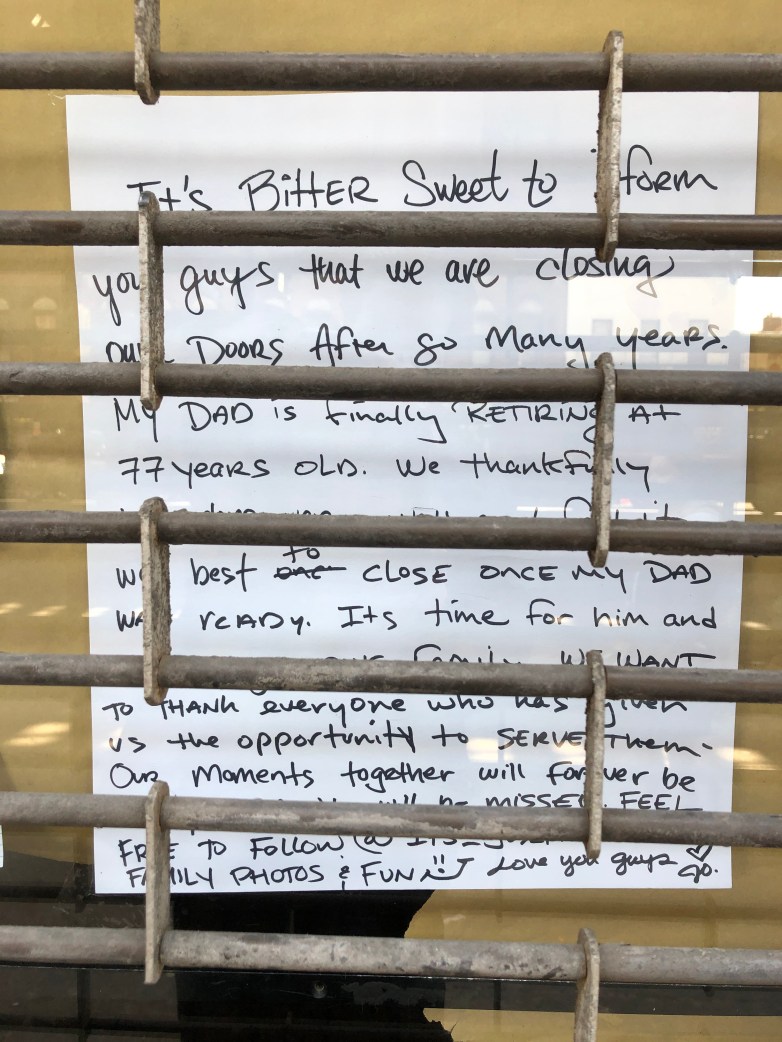 It's BittER Sweet to inform
you guys that we are closing
our DOORS After so Many years.
My DAD is finally RETIRING At
77 years OLD. We thankfully
best to close once my DAD
was reADy. Its time for him and
our family. WE WANT
TO THANK everyone who has given
us the opportunity to SERVE Them.
Our Moments together will forever be
will be MISSED. FEEL
FREE TO FOLLOW @
FAMILY PHOTOS & FUN Love you guys